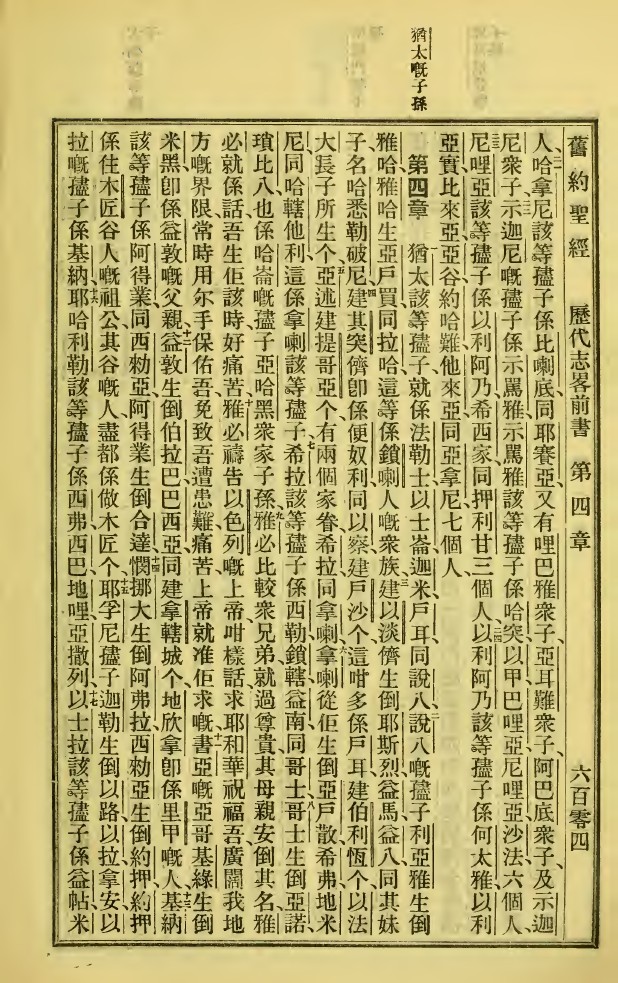 舊約聖經　歷代志畧前書　第四章　六百零四
猶太嘅子孫
人哈拿尼該等孻子係比喇底同耶賽亞又有哩巴雅衆子亞耳難衆子阿巴底衆子及示迦
尼衆子示迦尼嘅孻子係示罵雅示罵雅該等孻子係哈突以甲巴哩亞尼哩亞沙法六個人
尼哩亞該等孻子係以利阿乃希西家同押利甘三個人以利阿乃該等孻子係何太雅以利
亞實比來亞亞谷約哈難他來亞同亞拿尼七個人
第四章　猶太該等孻子就係法勒士以士崙迦米戶耳同說八說八嘅孻子利亞雅生倒
雅哈雅哈生亞戶買同拉哈這等係鎖喇人嘅衆族建以淡儕生倒耶斯烈益馬益八同其妹
子名哈悉勒破尼建其突儕卽係便奴利同以察建戶沙个這咁多係戶耳建伯利恆个以法
大長子所生个亞述建提哥亞个有兩個家眷希拉同拿喇拿喇從佢生倒亞戶散希弗地米
尼同哈轄他利這係拿喇該等孻子希拉該等孻子係西勒鎖轄益南同哥士哥士生倒亞諾
瑣比八也係哈崙嘅孻子亞哈黑衆家子孫雅必比較衆兄弟就過尊貴其母親安倒其名雅
必就係話吾生佢該時好痛苦雅必禱告以色列嘅上帝咁樣話求耶和華祝福吾廣闊我地
方嘅界限常時用尔手保佑吾免致吾遭患難痛苦上帝就准佢求嘅書亞嘅亞哥基綠生倒
米黑卽係益敦嘅父親益敦生倒伯拉巴巴西亞同建拿轄城个地欣拿卽係里甲嘅人基納
該等孻子係阿得業同西勑亞阿得業生倒合達憫挪大生倒阿弗拉西勑亞生倒約押約押
係住木匠谷人嘅祖公其谷嘅人盡都係做木匠个耶孚尼孻子迦勒生倒以路以拉拿安以
拉嘅孻子係基納耶哈利勒該等孻子係西弗西巴地哩亞撒列以士拉該等孻子係益帖米